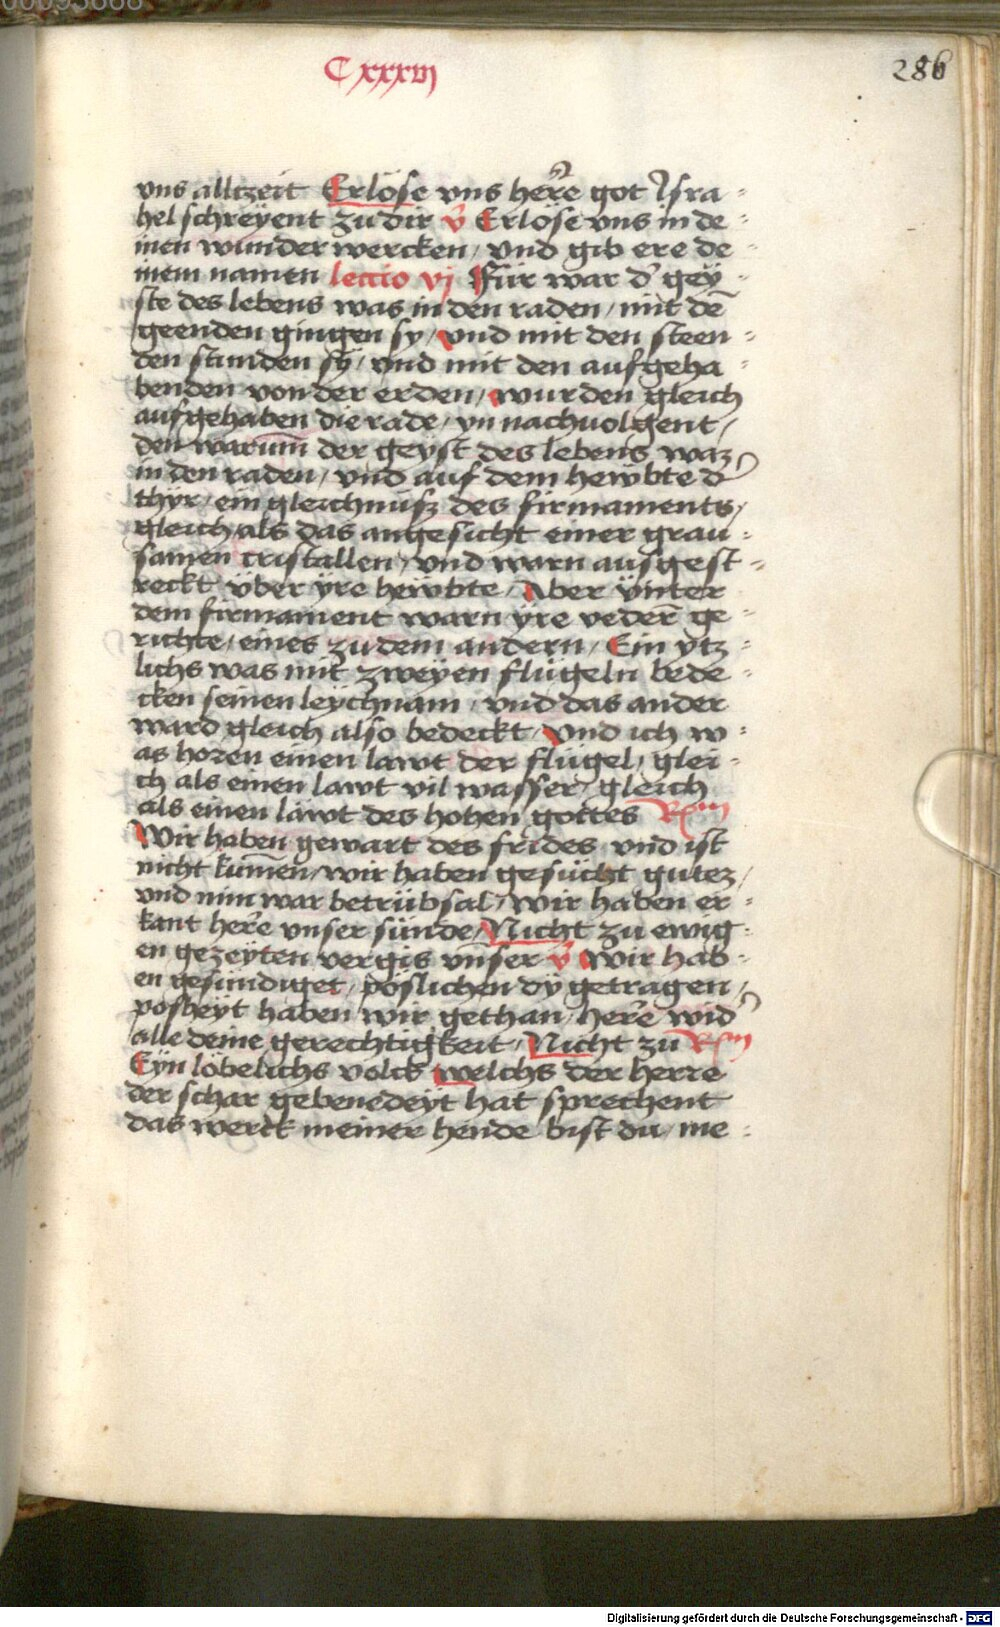 C xxxvj
286
vns alltzeit Erlöse vns here got Isra -
hel schreyent zu dir v̄ Erlöse vns in de -
inen wunder wercken / vnd gib ere de -
inem namen lectio vj Für war d' gey -
ste des lebens was in den raden / mit dē
geenden gingen sy / vnd mit den steen -
den stunden sy / vnd mit den aufgeha -
benden von der erden / wurden gleich
aufgehaben die rade / vn nachuolgent /
den warum̄ der geyst des lebens waz
in den raden / vnd auf dem hewbte d'
thyr / ein gleichnusz des firmaments /
gleich als das angesicht einer grau -
samen cristallen / vnd warn ausgest -
reckt vber yre hewbte / Aber vnter
dem firmament warn yre veder̄ ge -
richte / eines zu dem andern / Ein ytz -
lichs was mit zweyen flügeln bede -
cken seinen leychnam / vnd das ander
ward gleich also bedeckt / vnd ich w -
as horen einen lawt der flügel / glei -
ch als einen lawt vil wasser / gleich
als einen lawt des hohen gottes
Wir haben gewart des frides vnd ist
nicht kum̄en / wir haben gesücht gutez /
vnd nim war betrübsal / wir haben er -
kant here vnser sünde / Nicht zu ewig -
en gezeyten vergis vnser v̄ Wir hab -
en gesundiget / pöslichen dy getragen /
posheyt haben wir gethan / here wid'
alle deine gerechtigkeit / Nicht zu
Eyn löbelichs volck welchs der herre
der schar gebenedeyt hat sprechent
das werck meiner hende bist du / me -
Digitalisierung gefördert durch die Deutsche Forschungsgemeinschaft - DFG